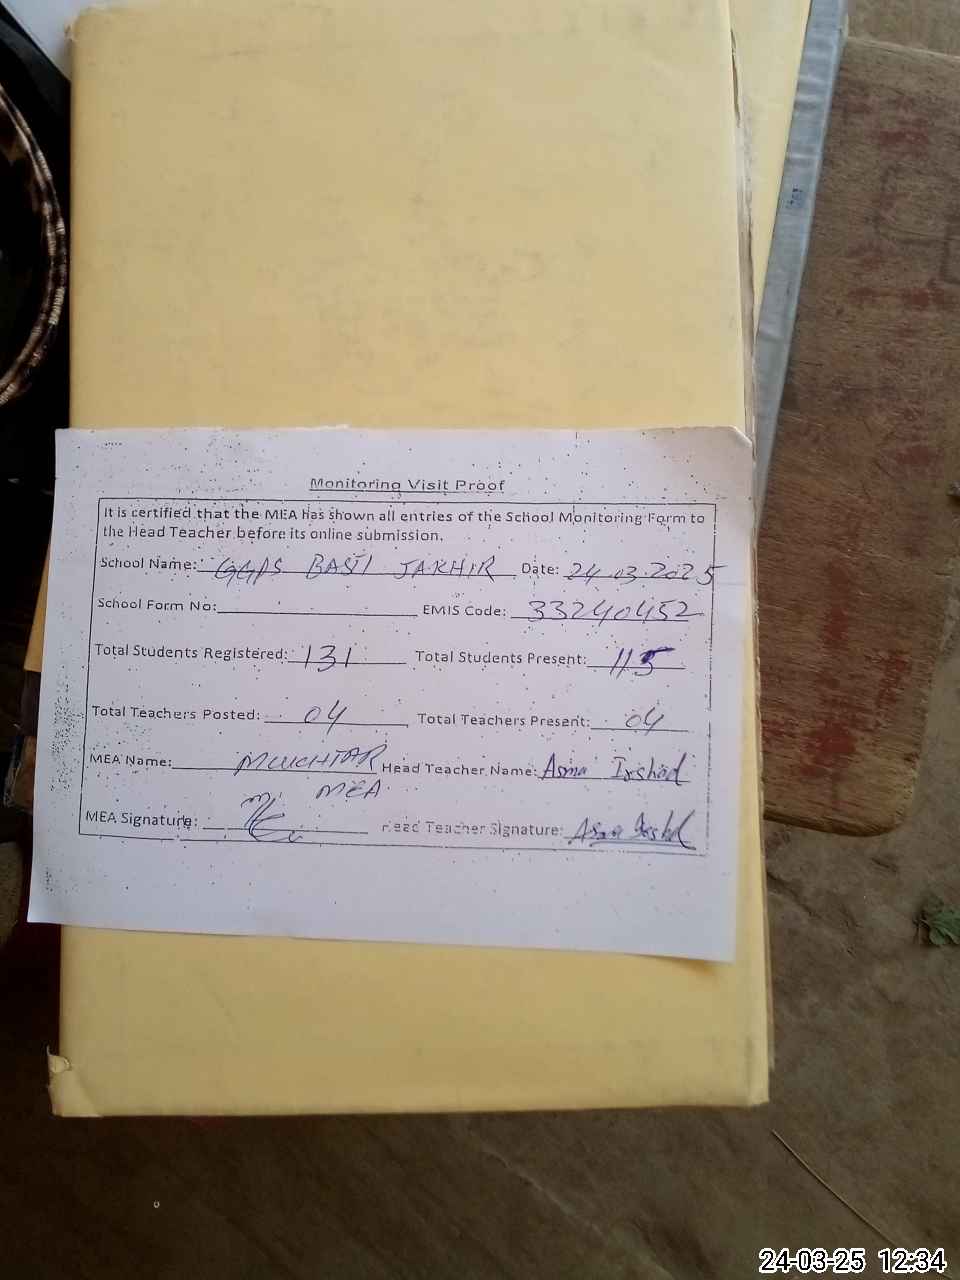 Monitoring Visit Proof
It is certified that the MEA has shown all entries of the School Monitoring Form to
the Head Teacher before its online submission.
School Name: GGPS BASTI JAKHIR Date: 24.03.2025
School Form No: EMIS Code: 33240452
Total Students Registered: 131 Total Students Present: 115
Total Teachers Posted: 04 Total Teachers Present: 04
MEA Name: MUUCHTAR Head Teacher Name: Asma Irshad
MEA
MEA Signature: Head Teacher Signature: Asma Irshad
24-03-25 12:34